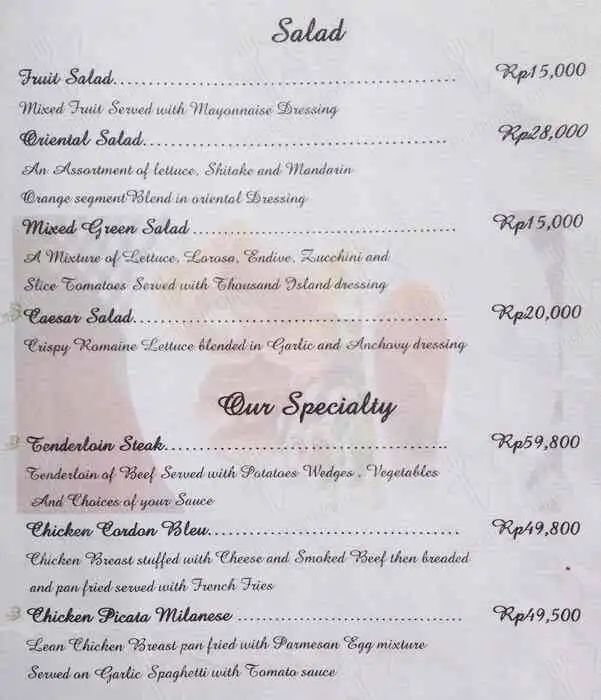 Salad
Fruit Salad................................................ Rp15,000
Mixed Fruit Served with Mayonnaise Dressing
Oriental Salad........................................... Rp28,000
An Assortment of lettuce, Shitake and Mandarin
Orange segment Blend in oriental Dressing
Mixed Green Salad..................................... Rp15,000
A Mixture of Lettuce, Lorosa, Endive, Zucchini and
Slice Tomatoes Served with Thousand Island dressing
Caesar Salad............................................. Rp20,000
Crispy Romaine Lettuce blended in Garlic and Anchovy dressing
Our Specialty
Tenderloin Steak........................................ Rp59,800
Tenderloin of Beef Served with Potatoes Wedges , Vegetables
And Choices of your Sauce
Chicken Cordon Bleu................................... Rp49,800
Chicken Breast stuffed with Cheese and Smoked Beef then breaded
and pan fried served with French Fries
Chicken Picata Milanese ............................... Rp49,500
Lean Chicken Breast pan fried with Parmesan Egg mixture
Served on Garlic Spaghetti with Tomato sauce